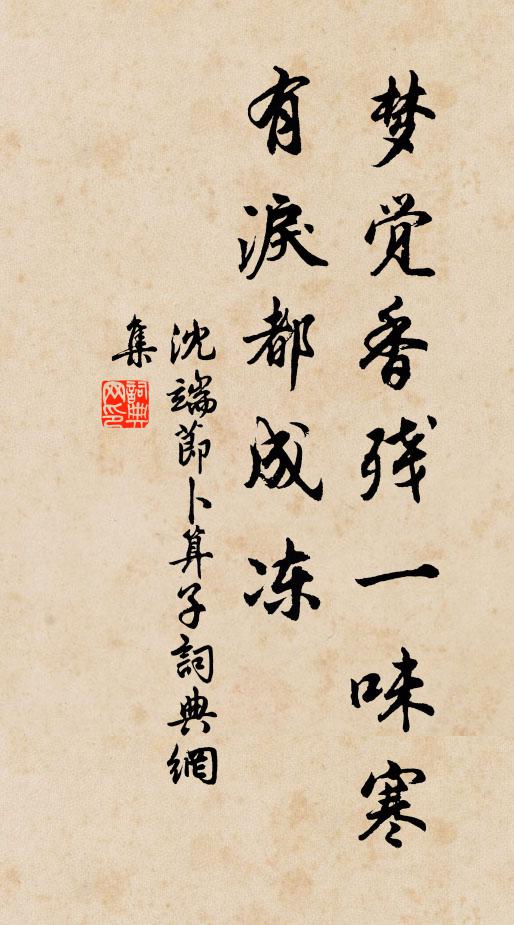 梦觉香残一味寒
有淚都成冻
沈端節卜算子詞典網
集
詞典網